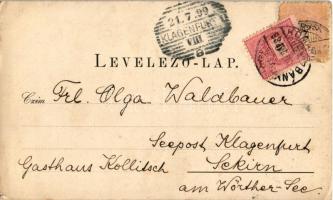 21.7.99
KLAGENFURT
VIII
LEVELEZŐ-LAP.
Czím Frl. Olga Waldbauer
Seepost Klagenfurt
Gasthaus Kollitsch Sekirn
am Wörther-See